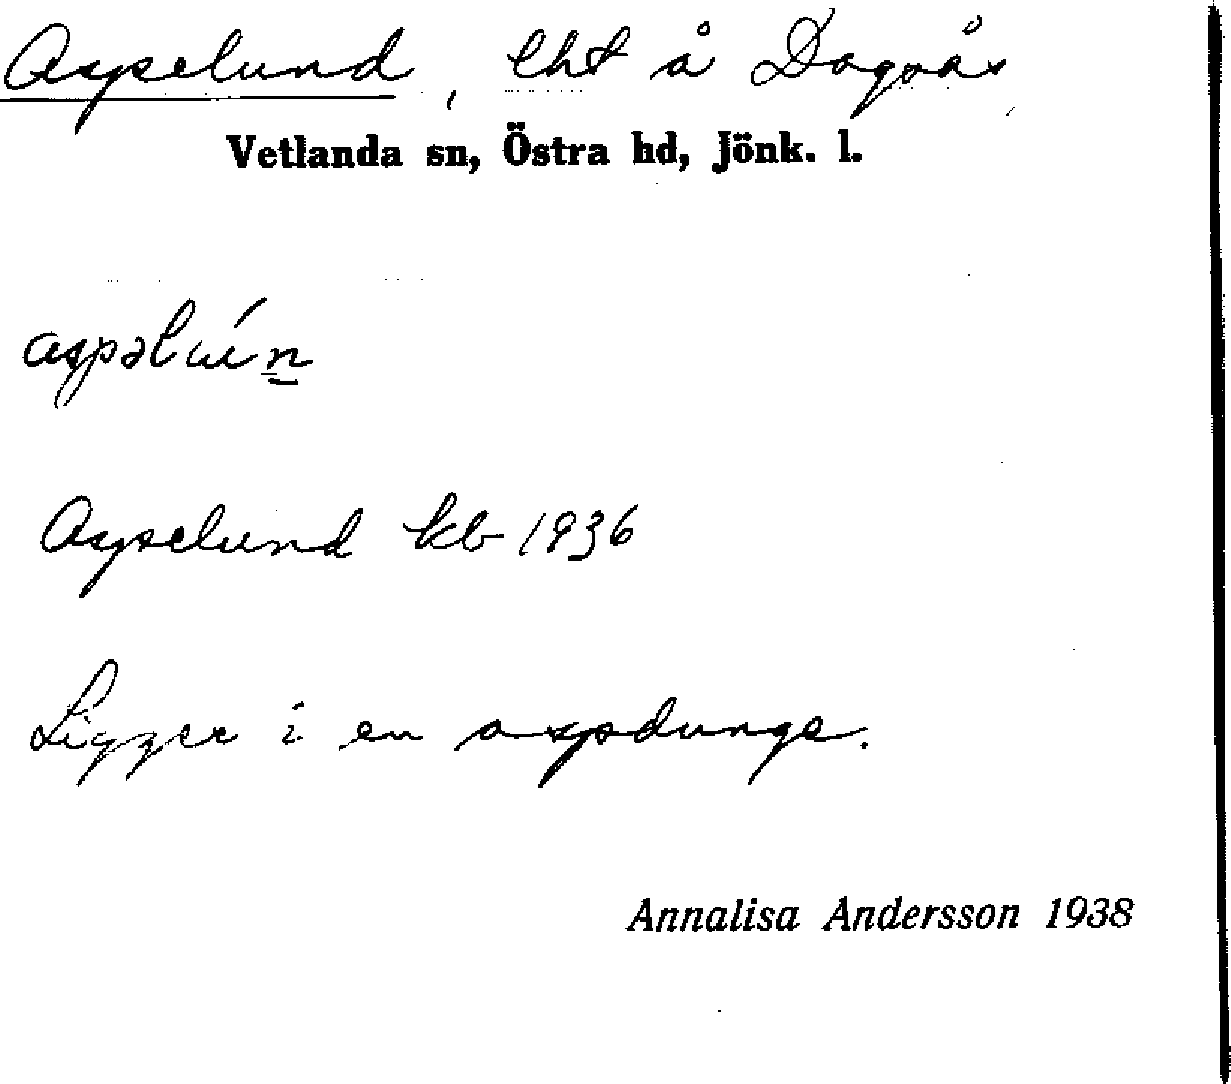 Aspelund, lht å Dagsås
Vetlanda sn, Östra hd, Jönk. l.
aspəlún̲
Aspelund kb 1936
Ligger i en aspdunge.
Annalisa Andersson 1938